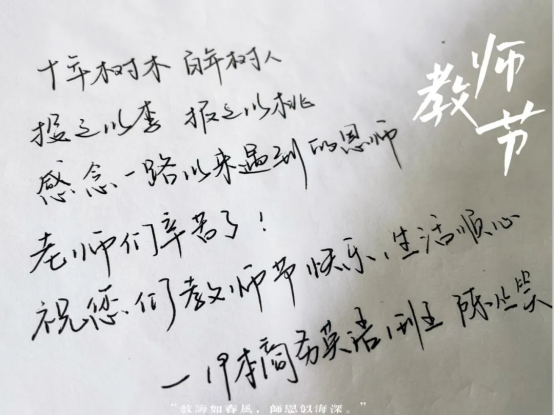 十年树木 百年树人
投之以李 报之以桃
感念一路以来遇到的恩师
老师们辛苦了!
祝您们教师节快乐,生活顺心
教师节
“教海如春風,師恩似海深。”